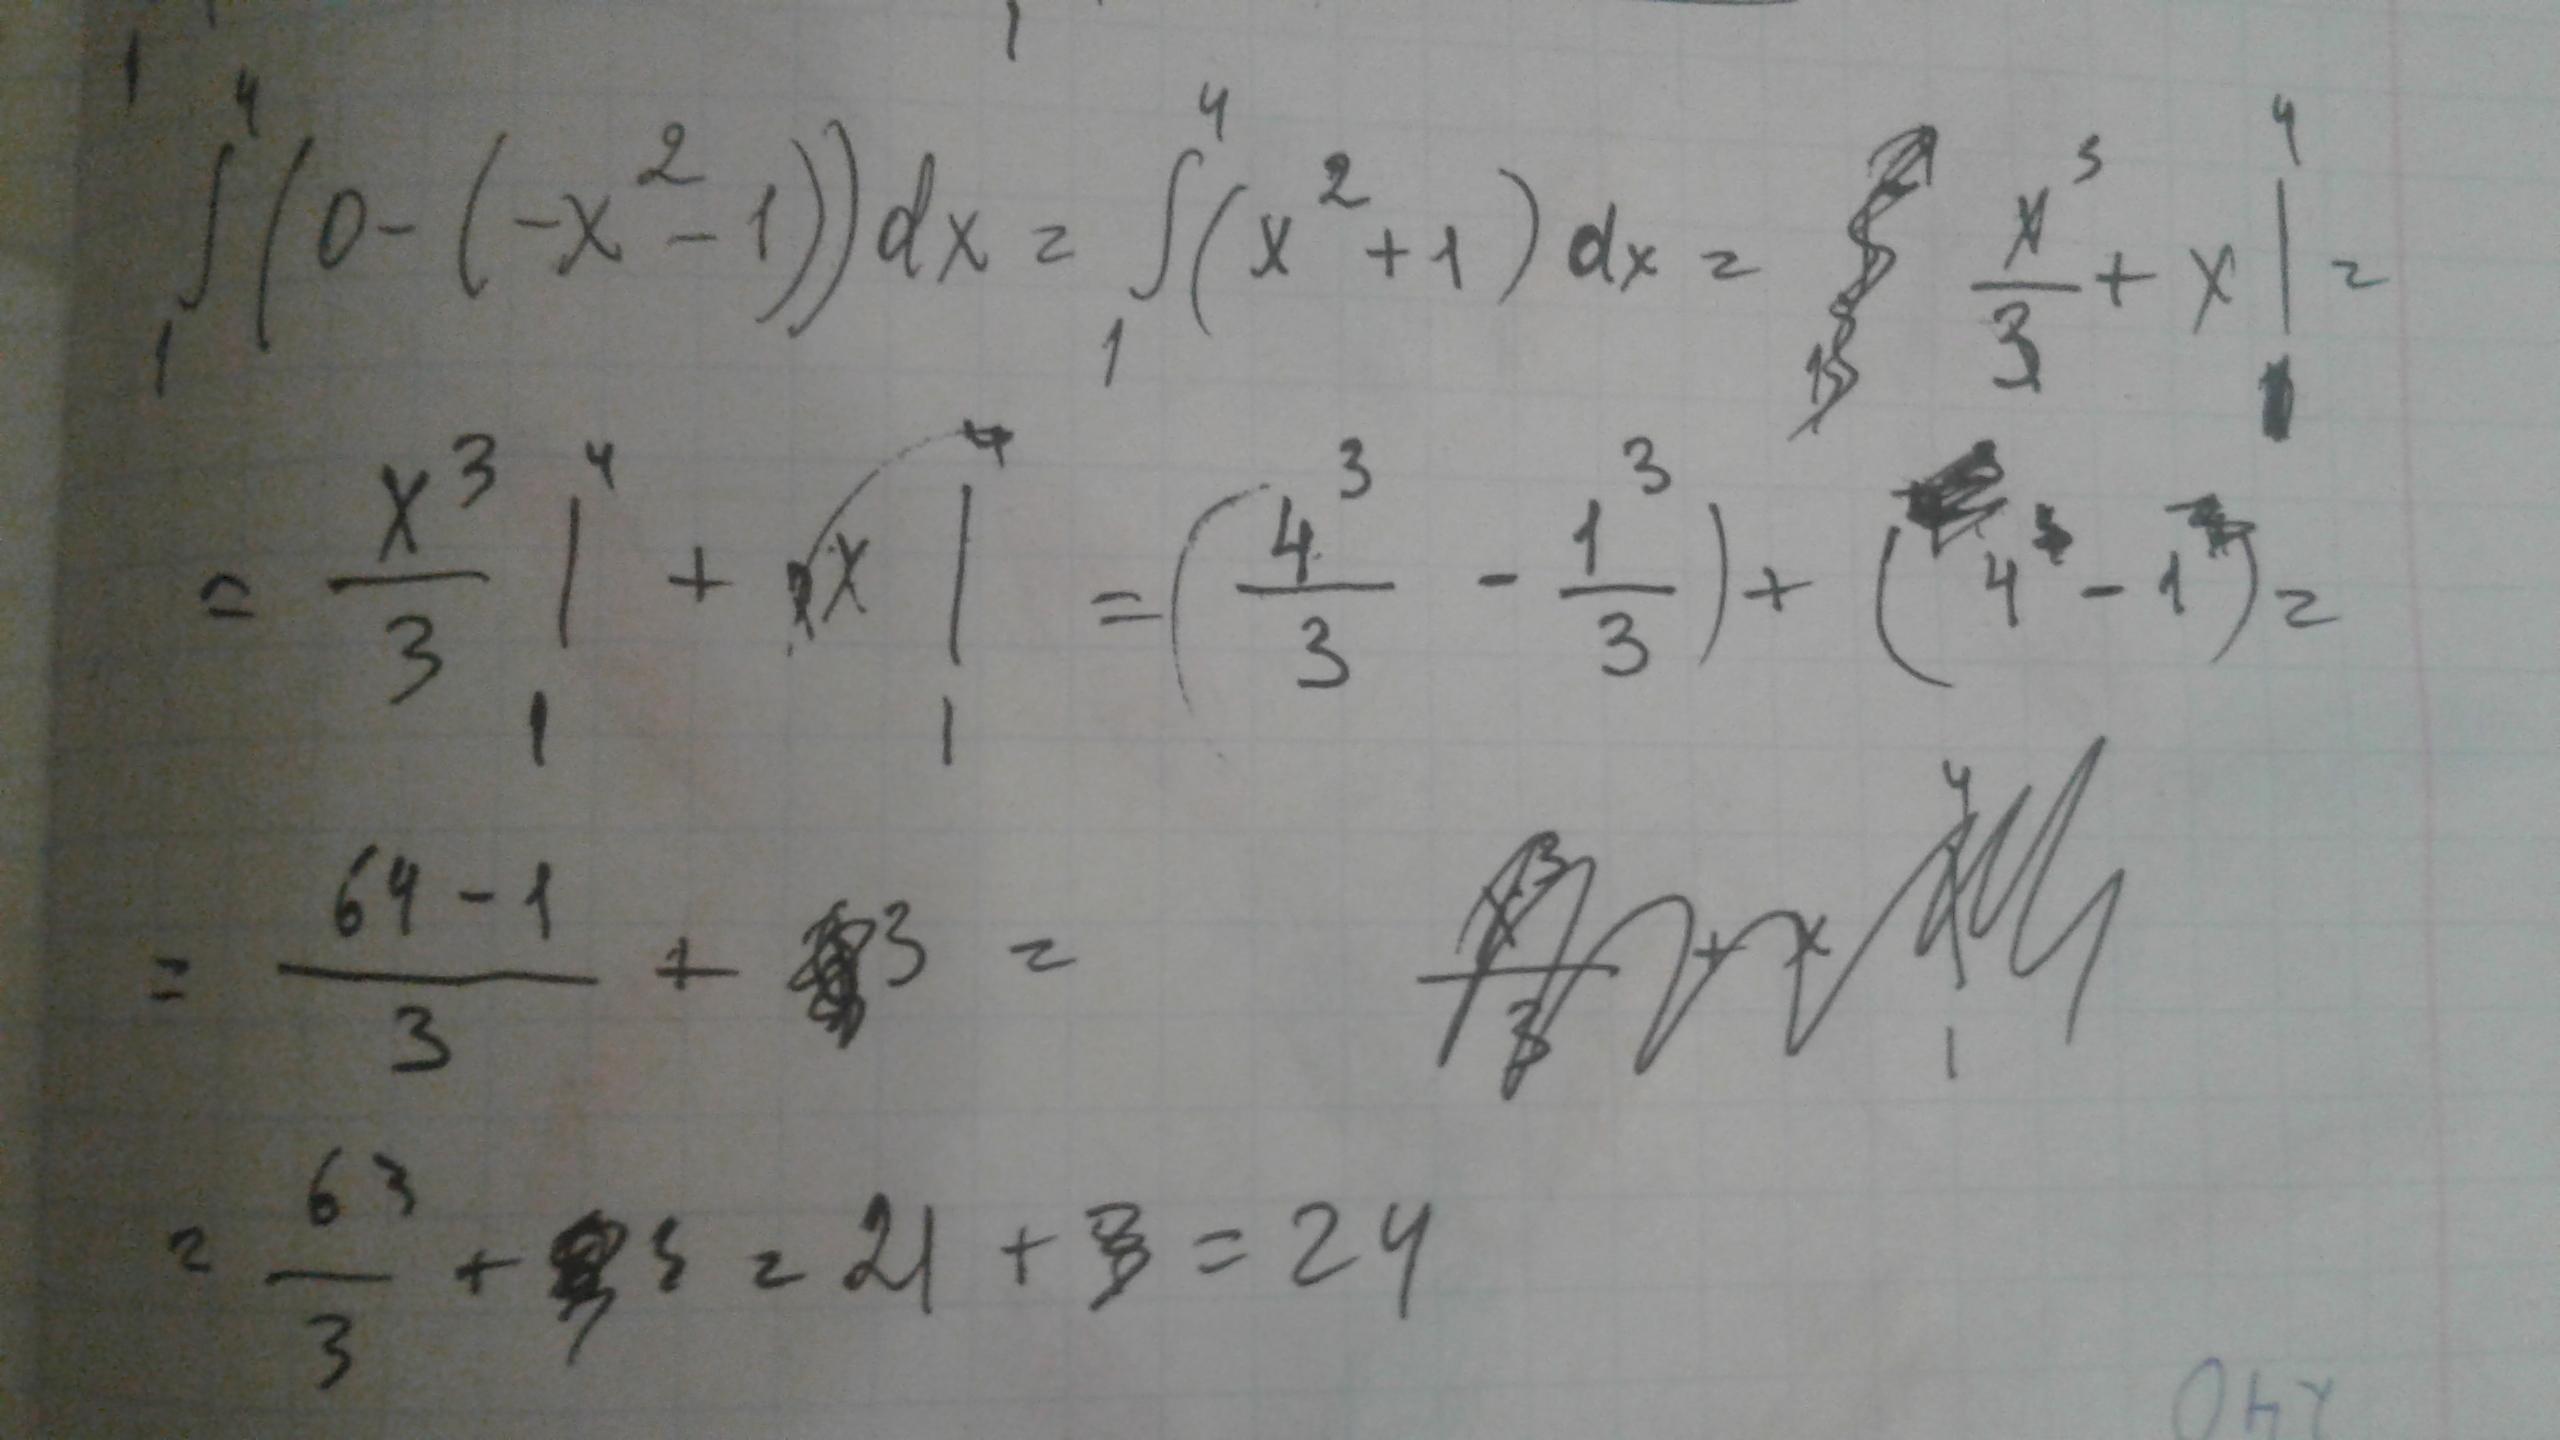 ∫₁⁴ (0 - (-x² - 1)) dx = ∫₁⁴ (x² + 1) dx = x³/3 + x |₁⁴ =
= x³/3 |₁⁴ + x |₁⁴ = (4³/3 - 1³/3) + (4 - 1) =
= (64 - 1)/3 + 3 =
= 63/3 + 3 = 21 + 3 = 24